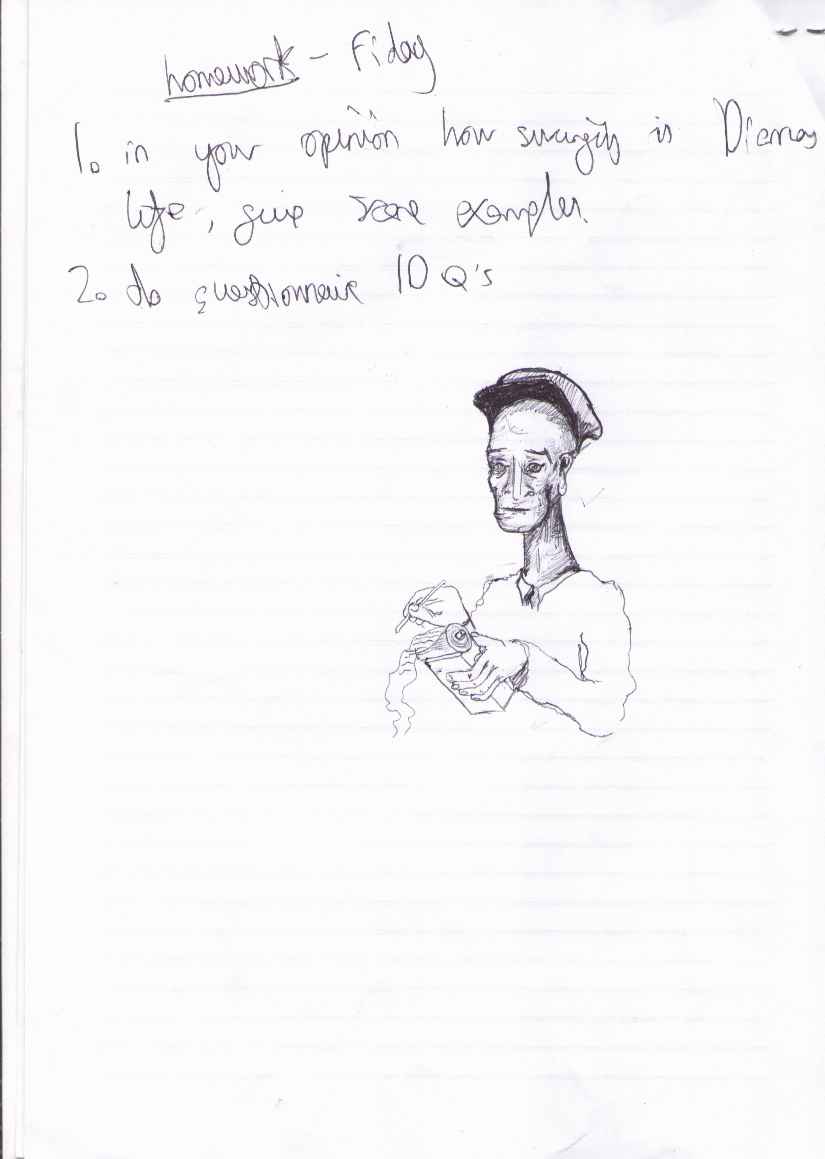 homework - Fiday
1. in your opinion how is
life, give some examples.
2. do questionnaire 10 Q's